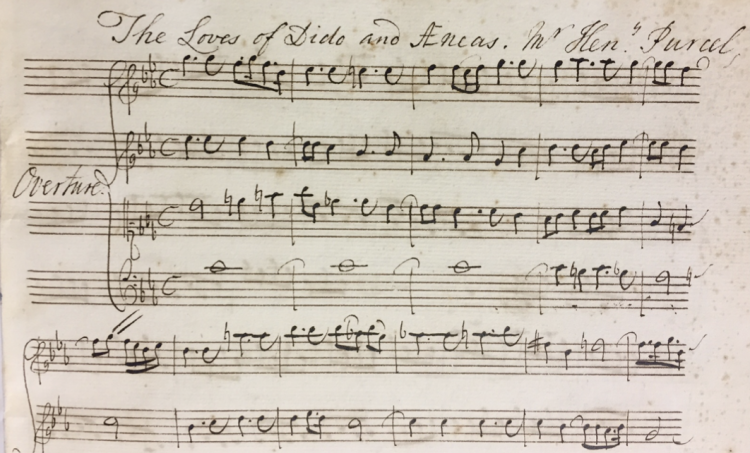 The Loves of Dido and Æneas. Mr Hen.y Purcel,
Overture.